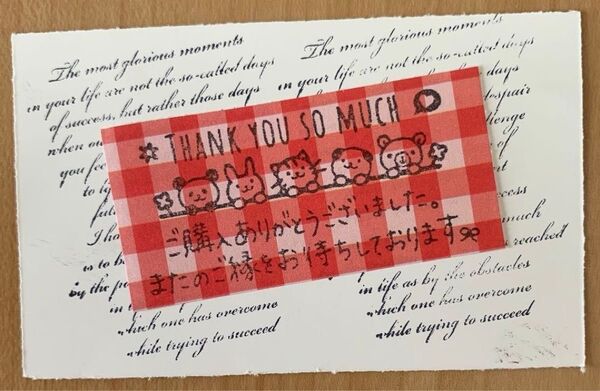 The most glorious moments
in your life are not the so-called days
of success, but rather those days
when ou
you fee
to
fu
I ha
is to b
by the p
in
which one has overcome
while trying to succeed
The most glorious moments
in your life are not the so-called days
days
despair
lenge
of
success
much
reached
in life as by the obstacles
which one has overcome
while trying to succeed
THANK YOU SO MUCH
ご購入ありがとうございました。
またのご縁をお待ちしております